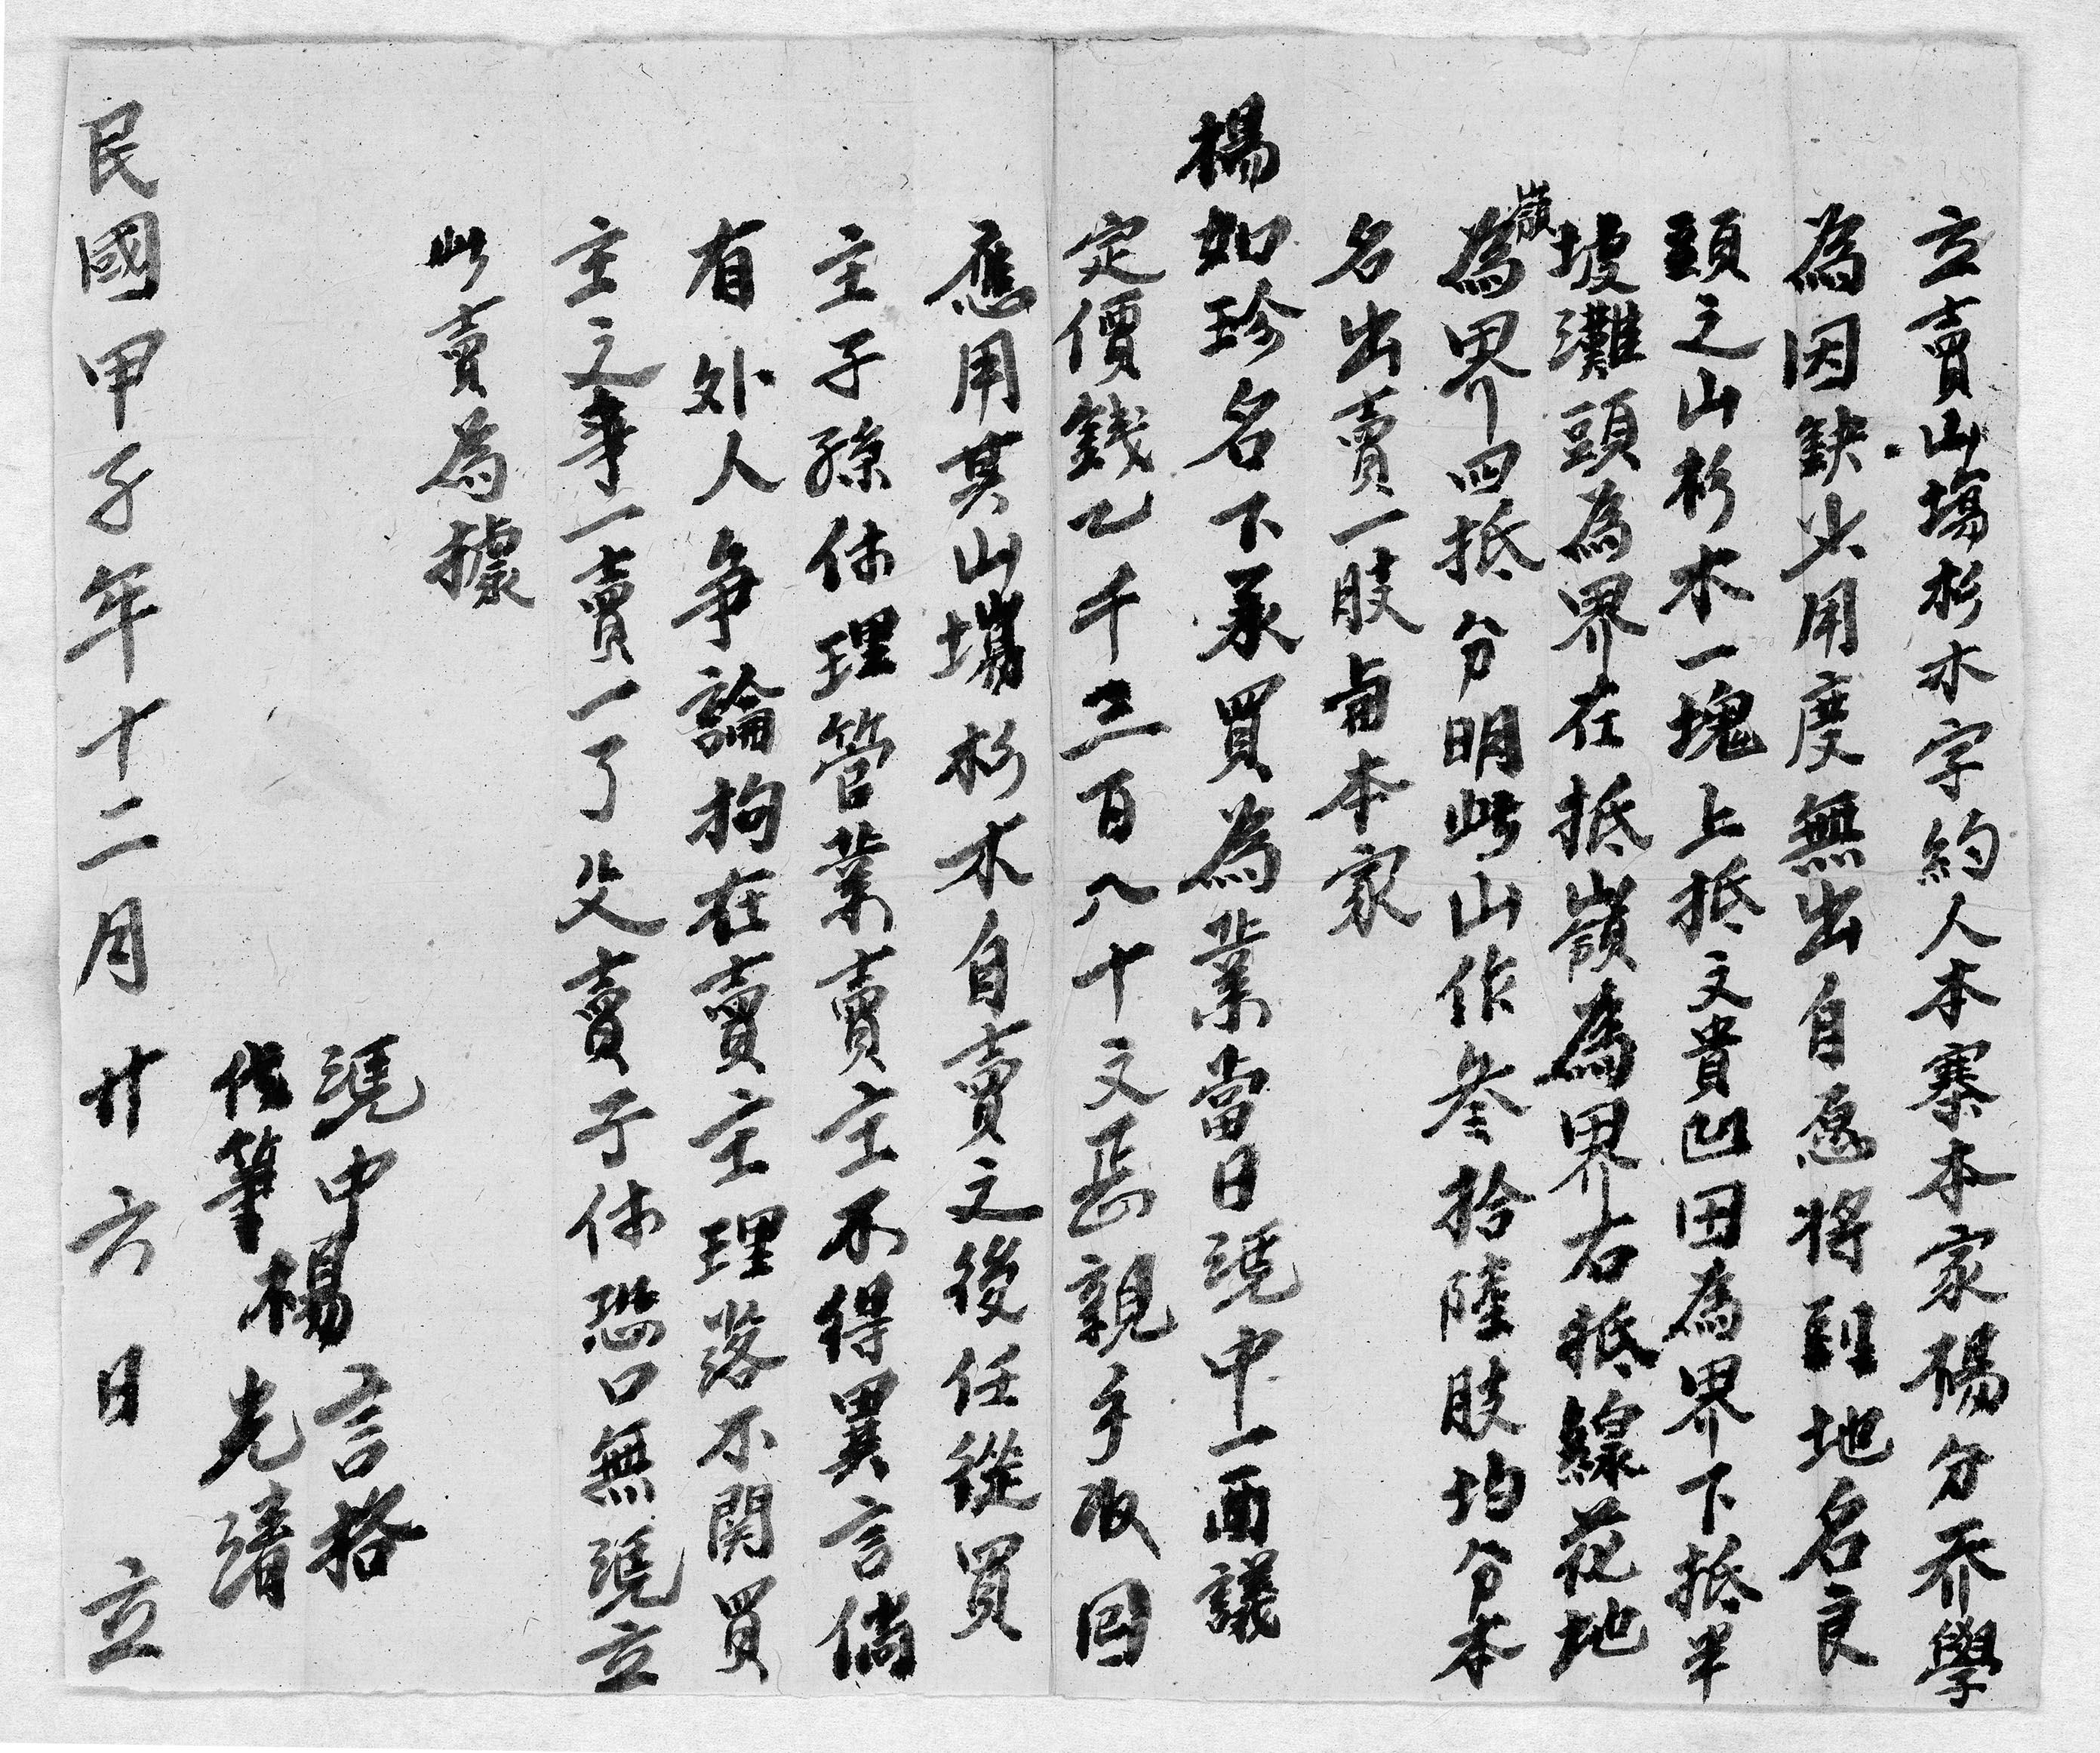 立賣山塲杉木字約人本寨本家楊分乔學
為因缺少用度無出自愿将到地名良
頭之山杉木一塊上抵文貴凹田為界下抵半
坡灘頭為界在抵嶺為界右抵線花地
嶺
為界四抵分明此山作叁拾陸肢均分本
名出賣一肢 本家
楊如珍名下承買為業當日凴中一面議
定價錢乙千三百八十文 親手收回
應用其山塲杉木自賣之後任從買
主子孫体理管業賣主不得異言倘
有外人争論拘在賣主理落不関買
主之事一賣一了父賣子休恐口無凴立
此賣為據
凴中楊言格
代筆 光清
民國甲子年十二月廿六日 立